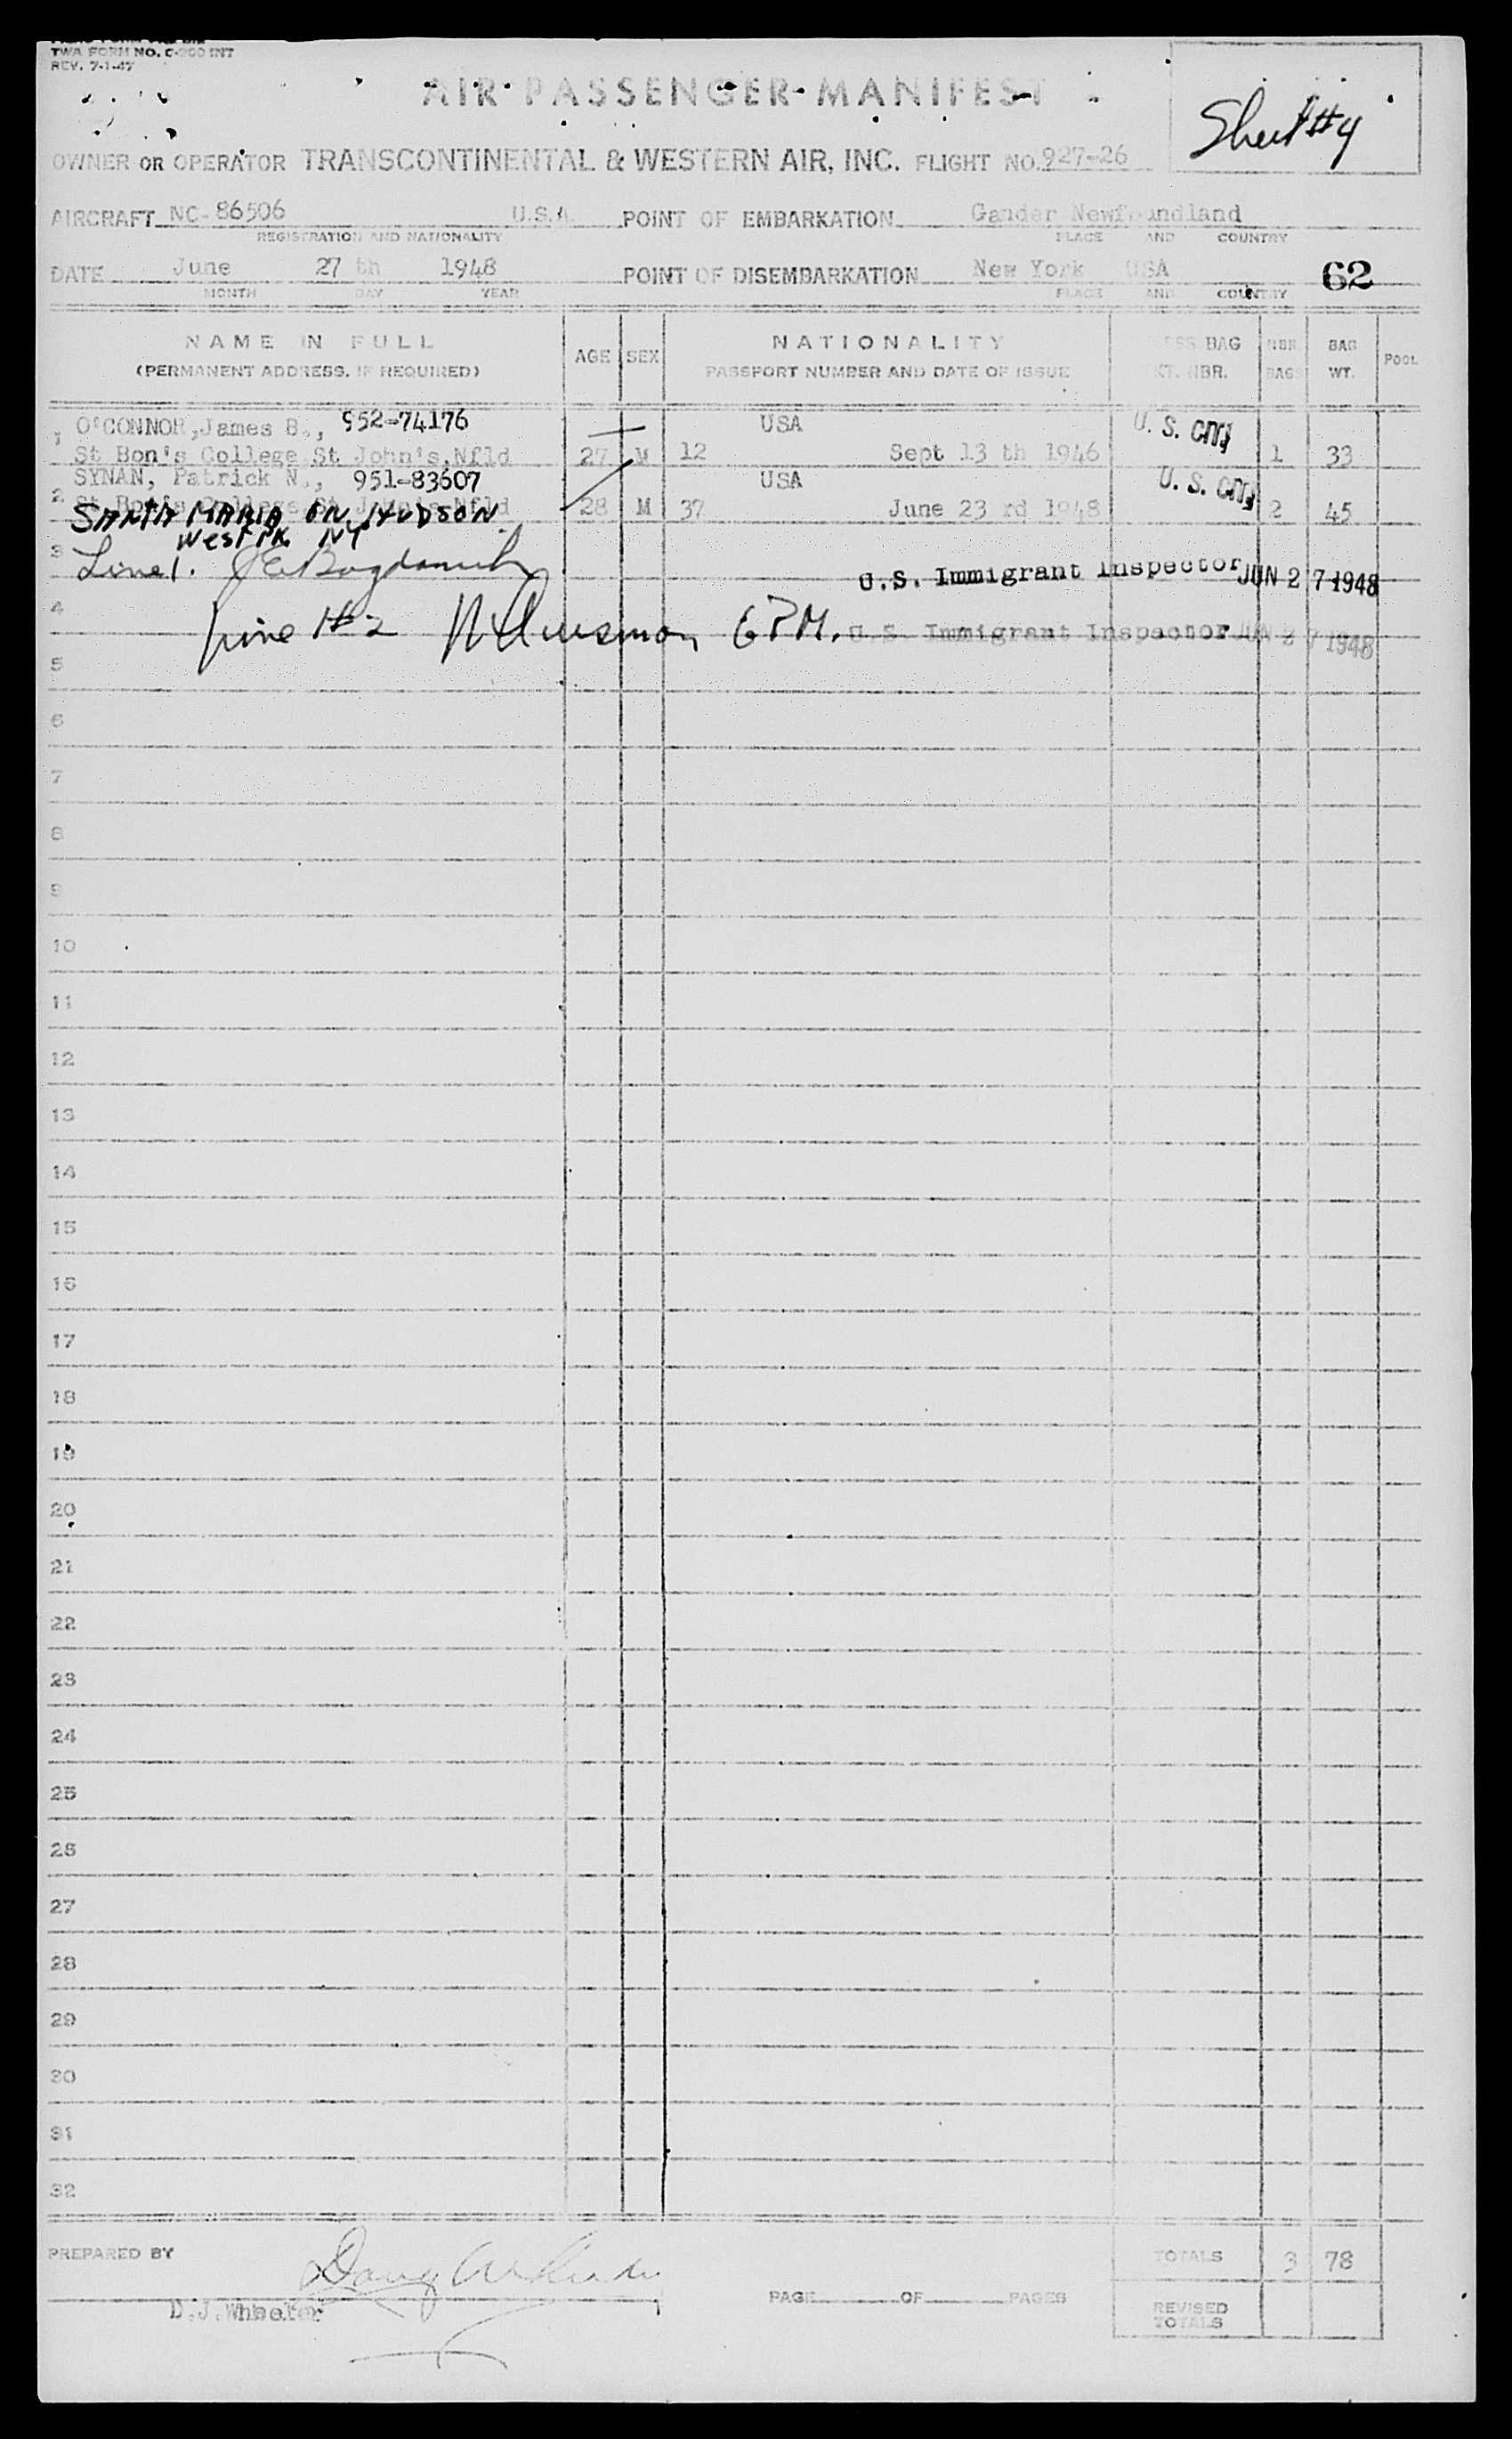 TWA FORM NO. C-200 INT
REV. 7-1-47
AIR PASSENGER MANIFEST
Sheet #4
OWNER OR OPERATOR TRANSCONTINENTAL & WESTERN AIR, INC. FLIGHT NO. 927-26
AIRCRAFT NC-86506 U.S.A. POINT OF EMBARKATION Gander Newfoundland
REGISTRATION AND NATIONALITY PLACE AND COUNTRY
DATE June 27 th 1948 POINT OF DISEMBARKATION New York USA 62
MONTH DAY YEAR PLACE AND COUNTRY
NAME IN FULL AGE SEX NATIONALITY BAG NBR BAG POOL
(PERMANENT ADDRESS, IF REQUIRED) PASSPORT NUMBER AND DATE OF ISSUE KT. NBR. BAGS WT.
O'CONNOR, James B., 952-74176 USA U. S. CITZ
St Bon's College St John's, Nfld 27 M 12 Sept 13 th 1946 1 33
SYNAN, Patrick N., 951-83607 USA U. S. CITZ
2 St Bon's College St John's Nfld 28 M 37 June 23 rd 1948 2 45
SANTA MARIA ON HUDSON
West PK NY
3 Line 1. U.S. Immigrant Inspector JUN 27 1948
4 Line #2 U.S. Immigrant Inspector JUN 27 1948
5
6
7
8
9
10
11
12
13
14
15
16
17
18
19
20
21
22
23
24
25
26
27
28
29
30
31
32
PREPARED BY TOTALS 3 78
D.J. Wheeler
PAGE OF PAGES
REVISED
TOTALS